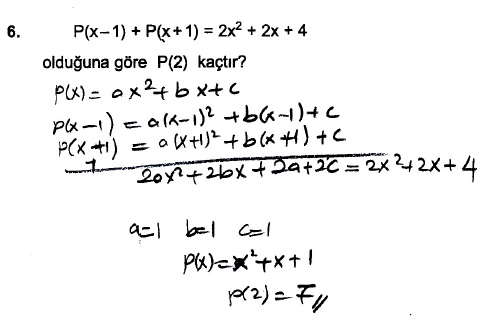 6. P(x−1) + P(x+1) = 2x² + 2x + 4
olduğuna göre P(2) kaçtır?
P(x) = ax² + bx + c
P(x−1) = a(x−1)² + b(x−1) + c
P(x+1) = a(x+1)² + b(x+1) + c
+
2ax² + 2bx + 2a + 2c = 2x² + 2x + 4
a=1 b=1 c=1
P(x) = x² + x + 1
P(2) = 7//